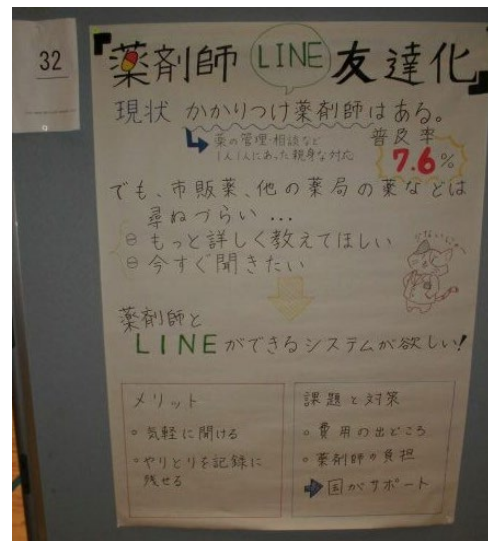 32
『薬剤師 LINE 友達化』
現状 かかりつけ薬剤師はある。
薬の管理・相談など
1人1人にあった親身な対応
普及率
7.6%
でも、市販薬、他の薬局の薬などは
尋ねづらい…
もっと詳しく教えてほしい
今すぐ聞きたい
薬剤師と
LINEができるシステムが欲しい!
メリット
◦気軽に聞ける
◦やりとりを記録に
残せる
課題と対策
◦費用の出どころ
◦薬剤師の負担
国がサポート